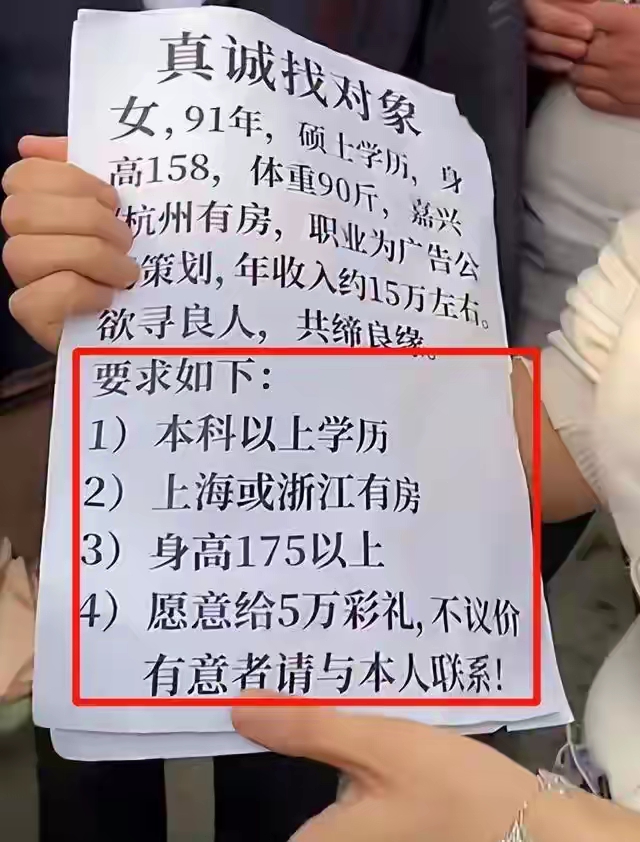 真诚找对象
女,91年，硕士学历，身
高158，体重90斤，嘉兴
杭州有房，职业为广告公
策划,年收入约15万左右。
欲寻良人，共缔良缘。
要求如下：
1）本科以上学历
2）上海或浙江有房
3）身高175以上
4）愿意给5万彩礼,不议价
有意者请与本人联系!